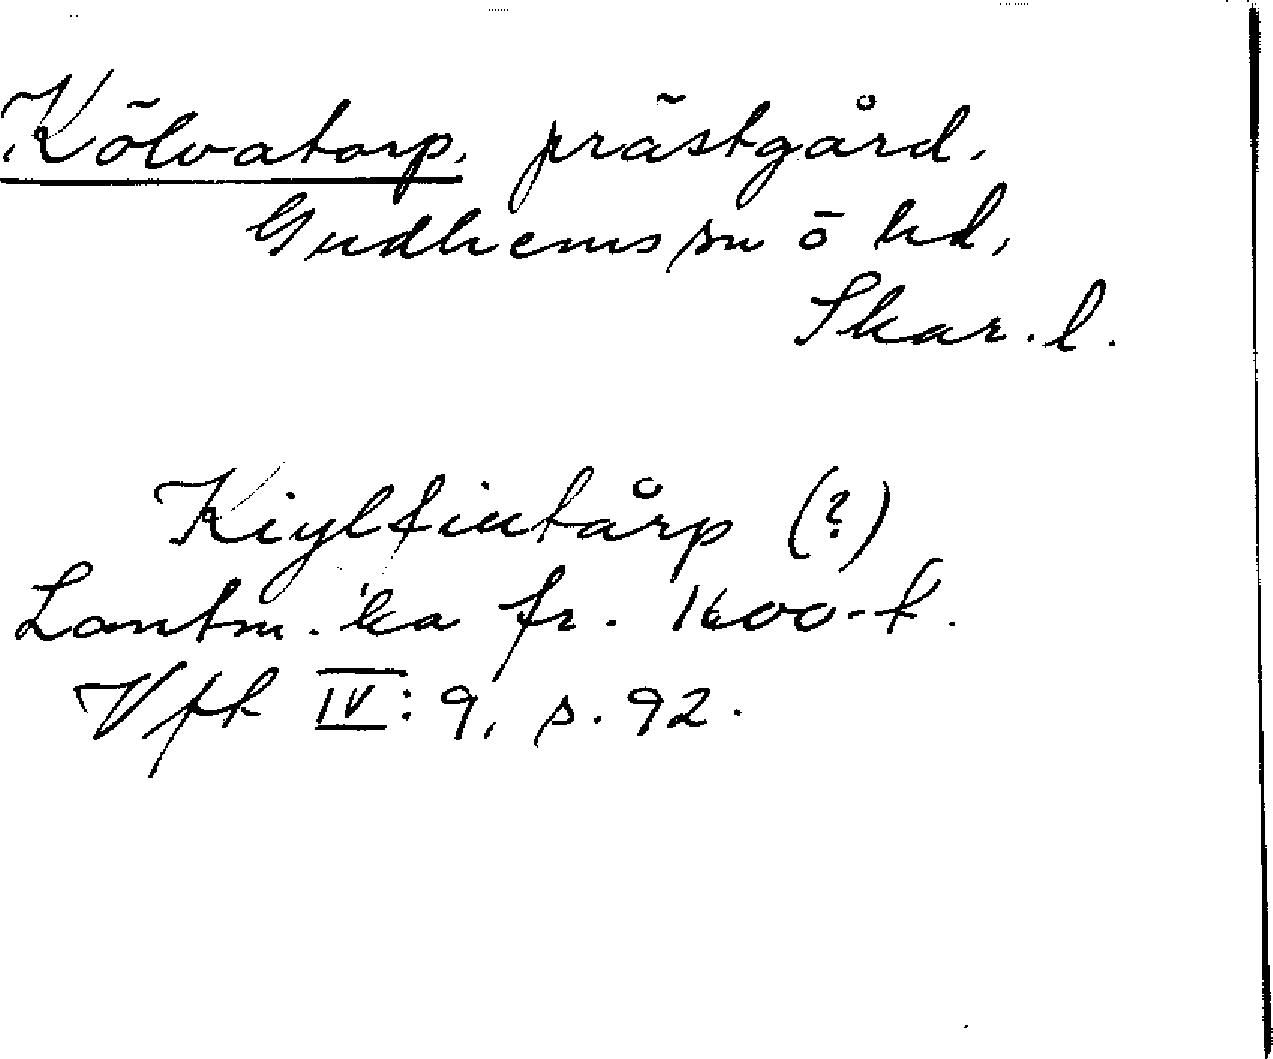 Kölvatorp, prästgård,
Gudhems sn ö hd,
Skar. l.
Kiylfintårp (?)
Lantm. ka fr. 1600-t.
Vfk IV: 9, s. 92.